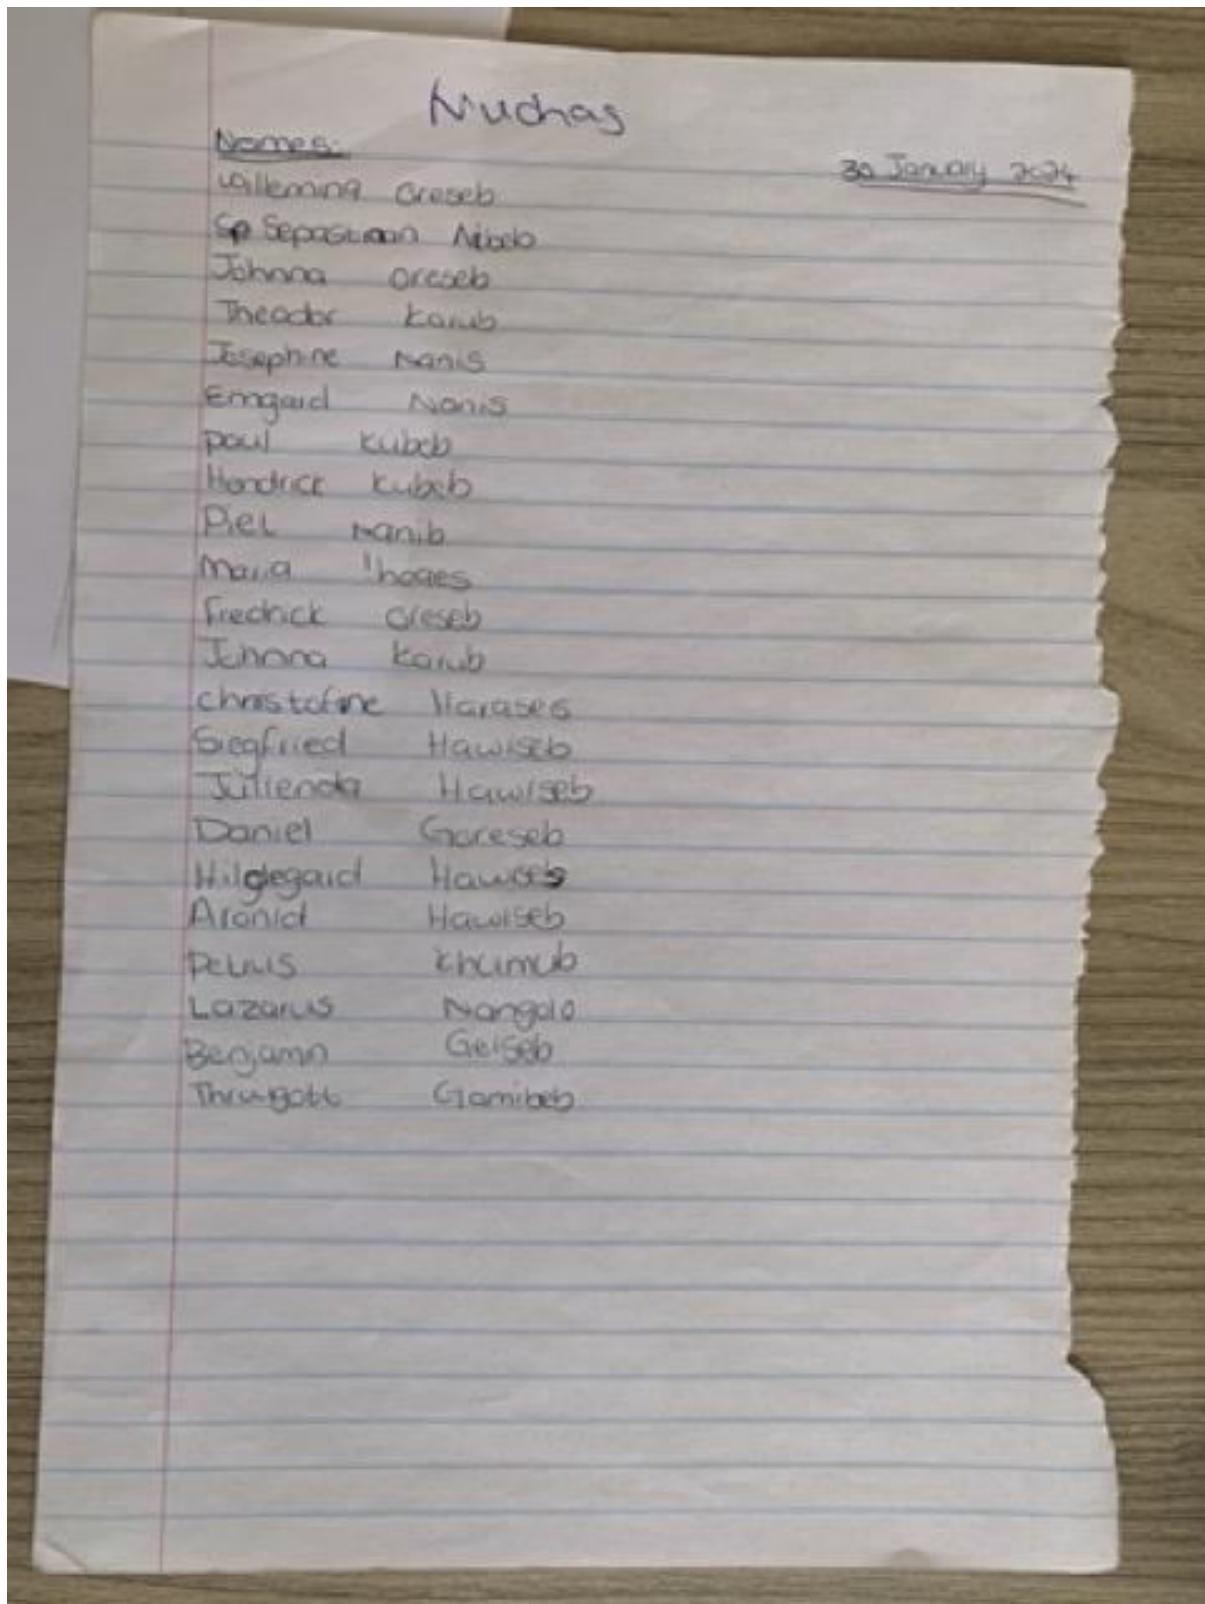 Nuchas
Names:
30 January 2024
Willemina Oreseb
Sepastiaan
Johnna Oreseb
Theodor Karub
Josephine Nanis
Emgard Nanis
Paul Kubeb
Hendrick Kubeb
Piet Nanib
Maria
Fredrick Oreseb
Johnna Karub
Christofine Harases
Siegfried Hawiseb
Julienda Hawiseb
Daniel Goreseb
Hildegard Hawises
Aronid Hawiseb
Petrus Khumub
Lazarus Nangolo
Benjamn Geiseb
Thrugott Gamibeb